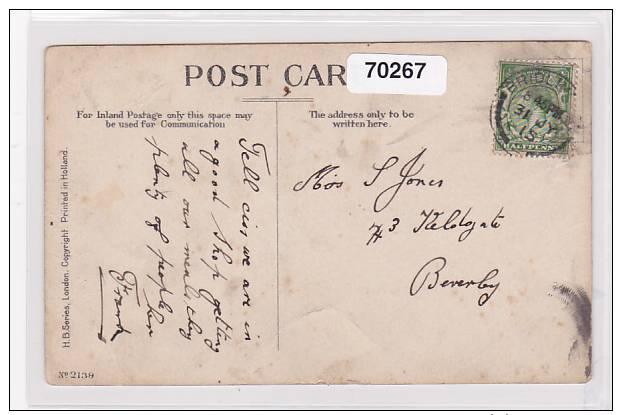 POST CAR
70267
For Inland Postage only this space may
be used for Communication
The address only to be
written here.
Tell ciss we are in
a good Shop getting
all our meals they
plenty of people her
Frank
Miss S Jones
43 Keldgate
Beverley
BRIDL
31 JY
15
HALFPENNY
H.B. Series, London. Copyright. Printed in Holland.
No 2139